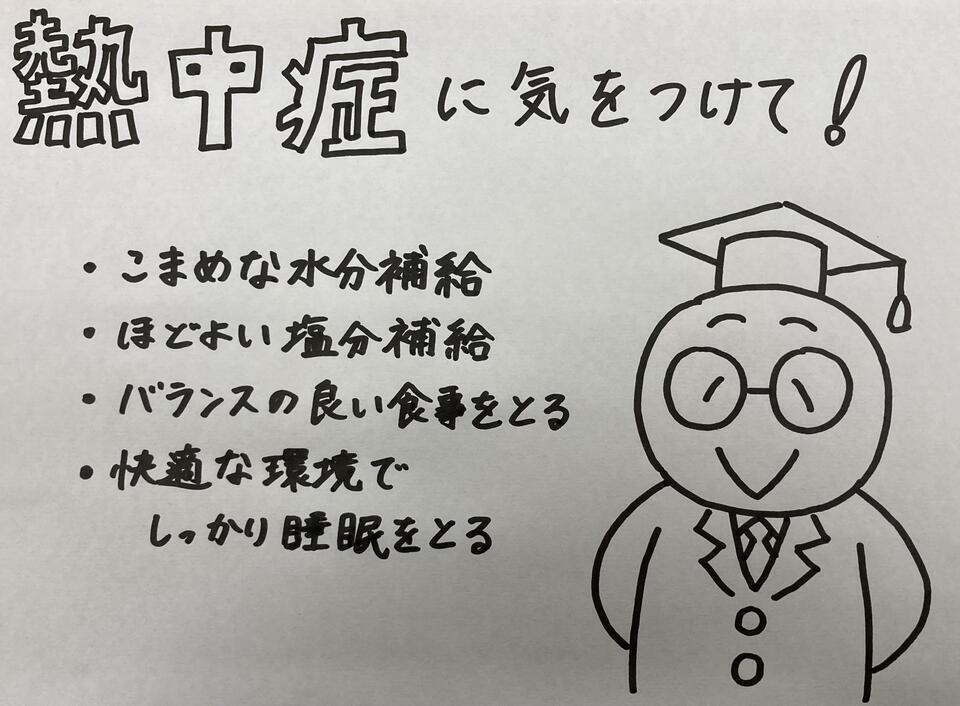 熱中症に気をつけて!
・こまめな水分補給
・ほどよい塩分補給
・バランスの良い食事をとる
・快適な環境で
しっかり睡眠をとる